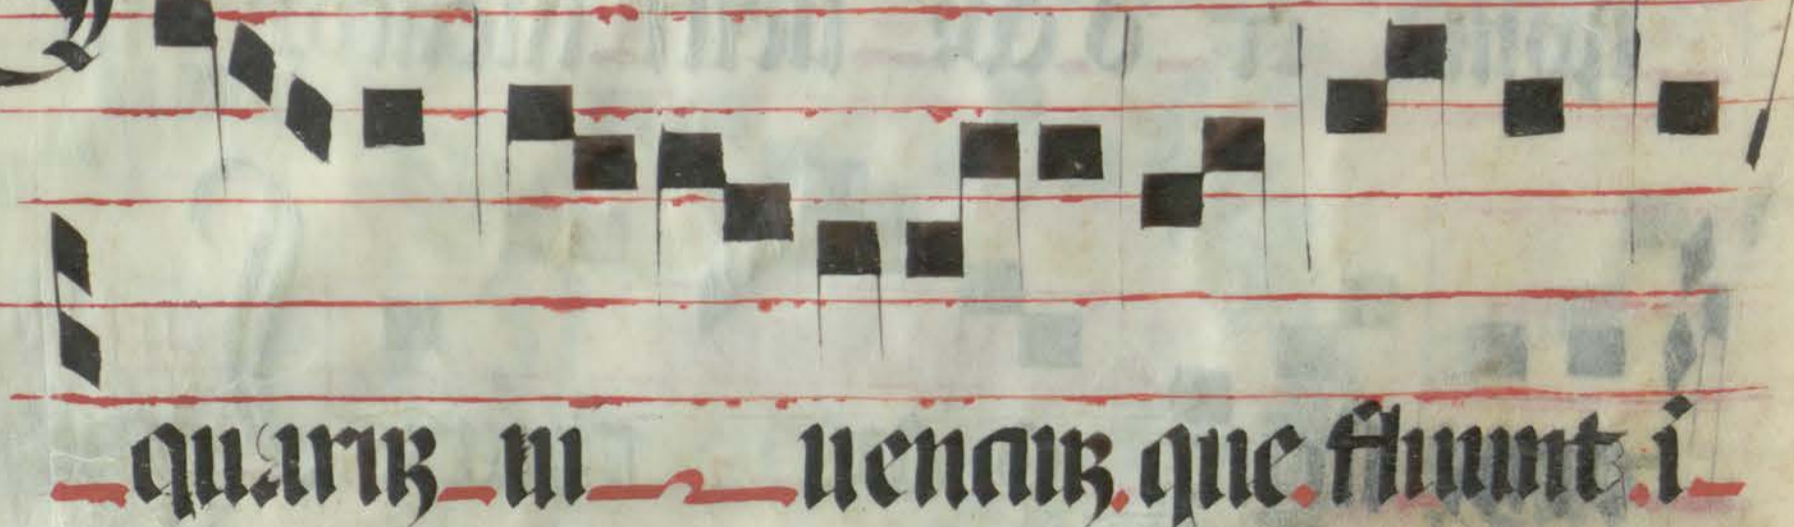 quaruꝫ ui uenciuꝫ que fluunt i